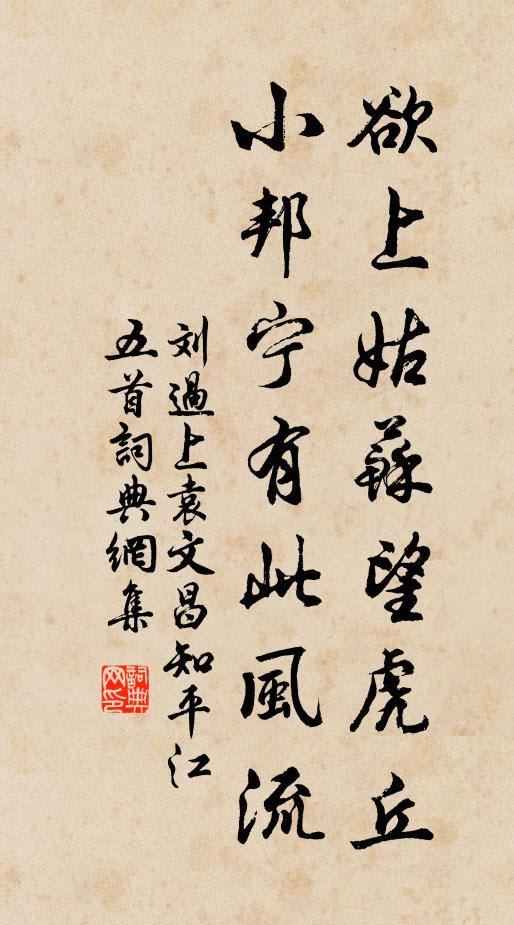 欲上姑蘇望虎丘
小邦宁有此風流
刘過上袁文昌知平江
五首詞典網集
詞典
网印